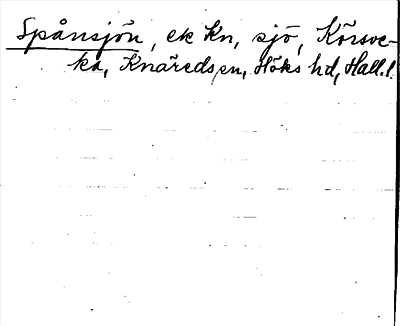 Spånsjön, ek Kn, sjö, Körsve-
ka, Knäreds sn, Höks hd, Hall. l.